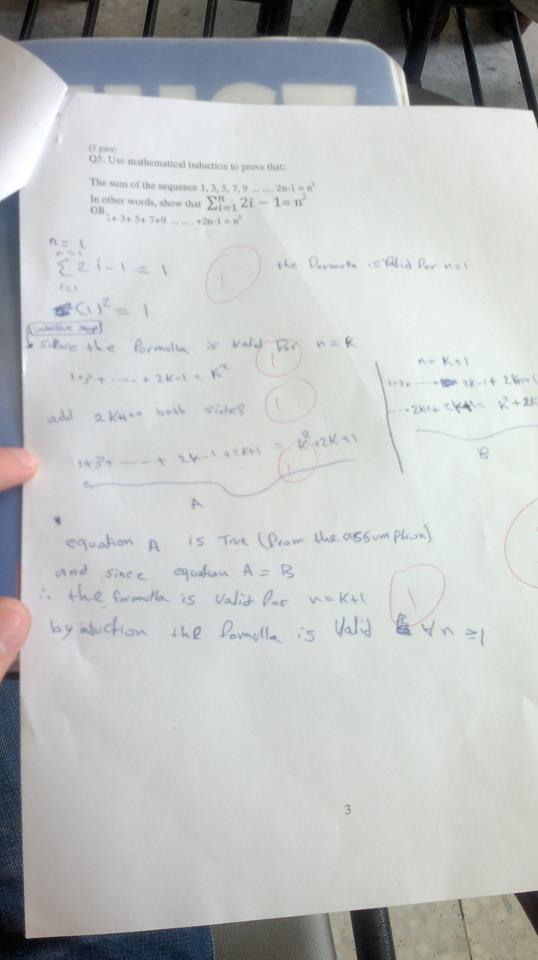 (5 points)
Q5. Use mathematical induction to prove that:
The sum of the sequence 1, 3, 5, 7, 9 ... ... 2n-1 = n²
In other words, show that ∑ⁿᵢ₌₁ 2i − 1 = n²
OR
1+ 3+ 5+ 7+9 ... ... +2n-1 = n²
n = 1
n=1
Σ 2i-1 = 1
i=1
1
the formula is valid for n=1
(1)² = 1
inductive step
since the formulla is valid for n = K
1
1+3+ ...... + 2K-1 = K²
add 2K+1 to both sides
1
1+3+ ...... + 2K-1 + 2K+1 = K²+2K+1
1
A
n = K+1
1+3+ ...... 2K-1 + 2K+1
..... 2K-1 + 2K+1 = K² + 2K
B
equation A is True (from the assumption)
and since equation A = B
∴ the formulla is valid for n=K+1
1
by intuction the fomulla is valid ∀ n ≥1
3